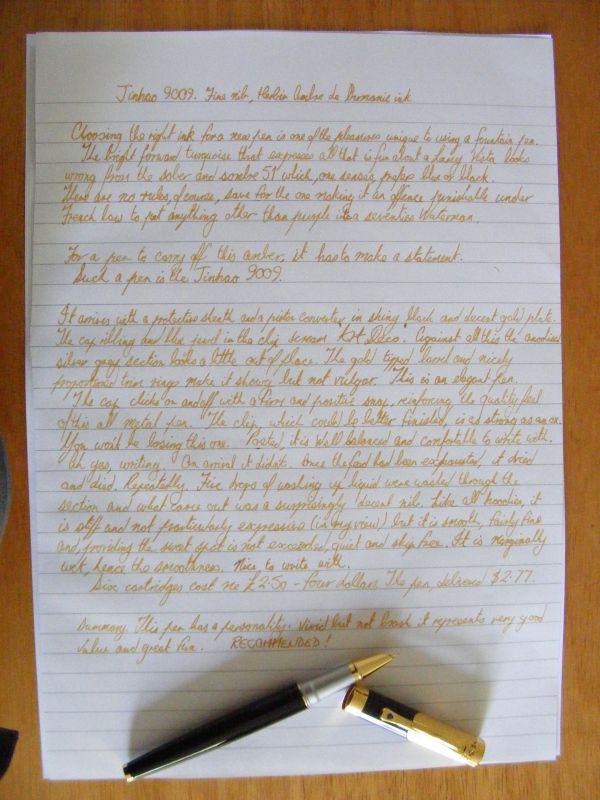 Jinhao 9009. Fine nib, Herbin Ambre de Birmanie ink
Choosing the right ink for a new pen is one of the pleasures unique to using a fountain pen.
The bright forward turquoise that expresses all that is fun about a Lamy Vista looks
wrong from the sober and sombre 51 which, one senses, prefers blue or black.
There are no rules, of course, save for the one making it an offence punishable under
French law to put anything other than purple into a seventies Waterman.
For a pen to carry off this amber, it has to make a statement.
Such a pen is the Jinhao 9009.
It arrives with a protective sheath and a piston converter, in shiny black and decent gold plate.
The cap ribbing and blue jewel in the clip scream Art Deco. Against all this the anodised
silver gray section looks a little out of place. The gold tipped barrel and nicely
proportioned trim rings make it showy but not vulgar. This is an elegant pen.
The cap clicks on and off with a firm and positive snap, reinforcing the quality feel
of this all metal pen. The clip, which could be better finished, is as strong as an ox.
You won't be losing this one. Posted it is well balanced and comfortable to write with.
Ah yes, writing. On arrival it didn't. Once the feed had been exhausted, it dried
and died. Repeatedly. Five drops of washing up liquid were washed through the
section and what came out was a surprisingly decent nib. Like all hoodies, it
is stiff and not particularly expressive (in my view) but it is smooth, fairly fine
and, providing the sweet spot is not exceeded, quiet and skip free. It is marginally
wet, hence the smoothness. Nice to write with.
Six cartridges cost me £2.50 - four dollars. The pen, delivered $2.77.
Summary. This pen has a personality. Vivid but not brash it represents very good
value and great fun. RECOMMENDED!